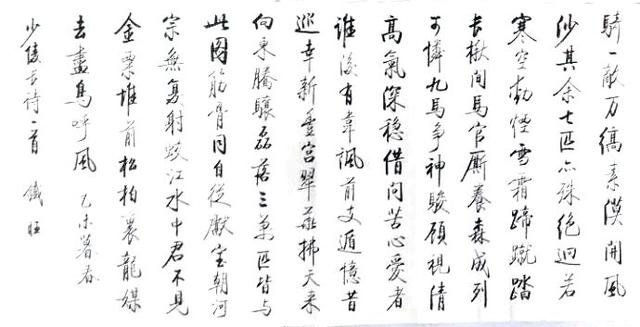 騎一敵万縞素漠開風
沙其余七匹亦殊絕迥若
寒空動煙雪霜蹄蹴踏
長楸間馬官厮養森成列
可憐九馬爭神駿顧視清
高氣深穩借問苦心愛者
誰後有韋諷前支遁憶昔
巡幸新豊宮翠華拂天來
向東騰驤磊落三萬匹皆与
此圖筋骨同自從獻宝朝河
宗無复射蛟江水中君不見
金粟堆前松柏裏龍媒
去盡鳥呼風 乙未暮春
少陵长诗一首 鐵旺